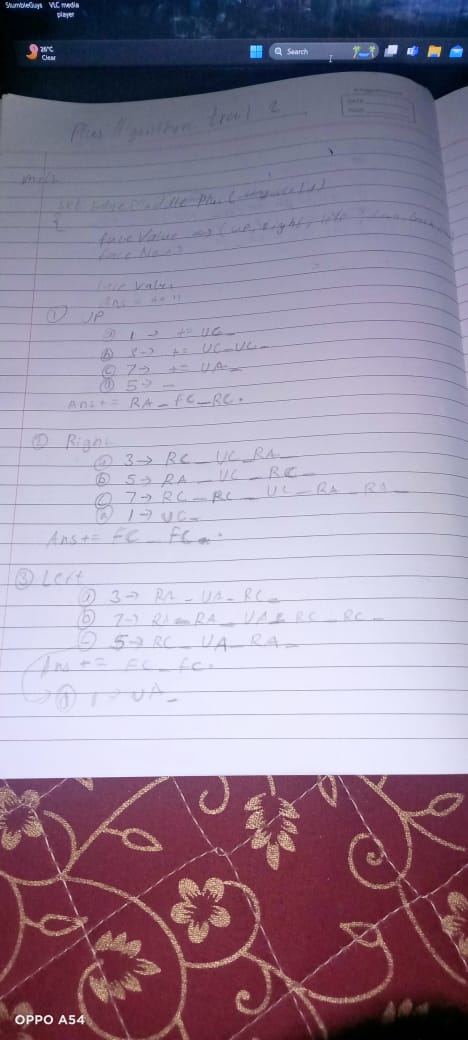 StumbleGuys VLC media
player
26°C
Clear
Search
Plus Algorithm trail 2
DATE
main
{
face Value
Ans =
① UP
ⓐ 1 → += UC_
ⓑ 3 → += UC_UC_
ⓒ 7 → += UA_
ⓓ 5 → _
Ans += RA_FC_RC.
② Right
ⓐ 3 → RC_UC_RA_
ⓑ 5 → RA_UC_RC_
ⓒ 7 → RC_RC_UC_RA_RA_
ⓓ 1 → UC_
Ans += FC_FC.
③ Left
ⓐ 3 → RA_UA_RC_
ⓑ 7 → RA_RA_UA_RC_RC_
ⓒ 5 → RC_UA_RA_
Ans += FC_FC.
ⓓ 1 → UA_
OPPO A54